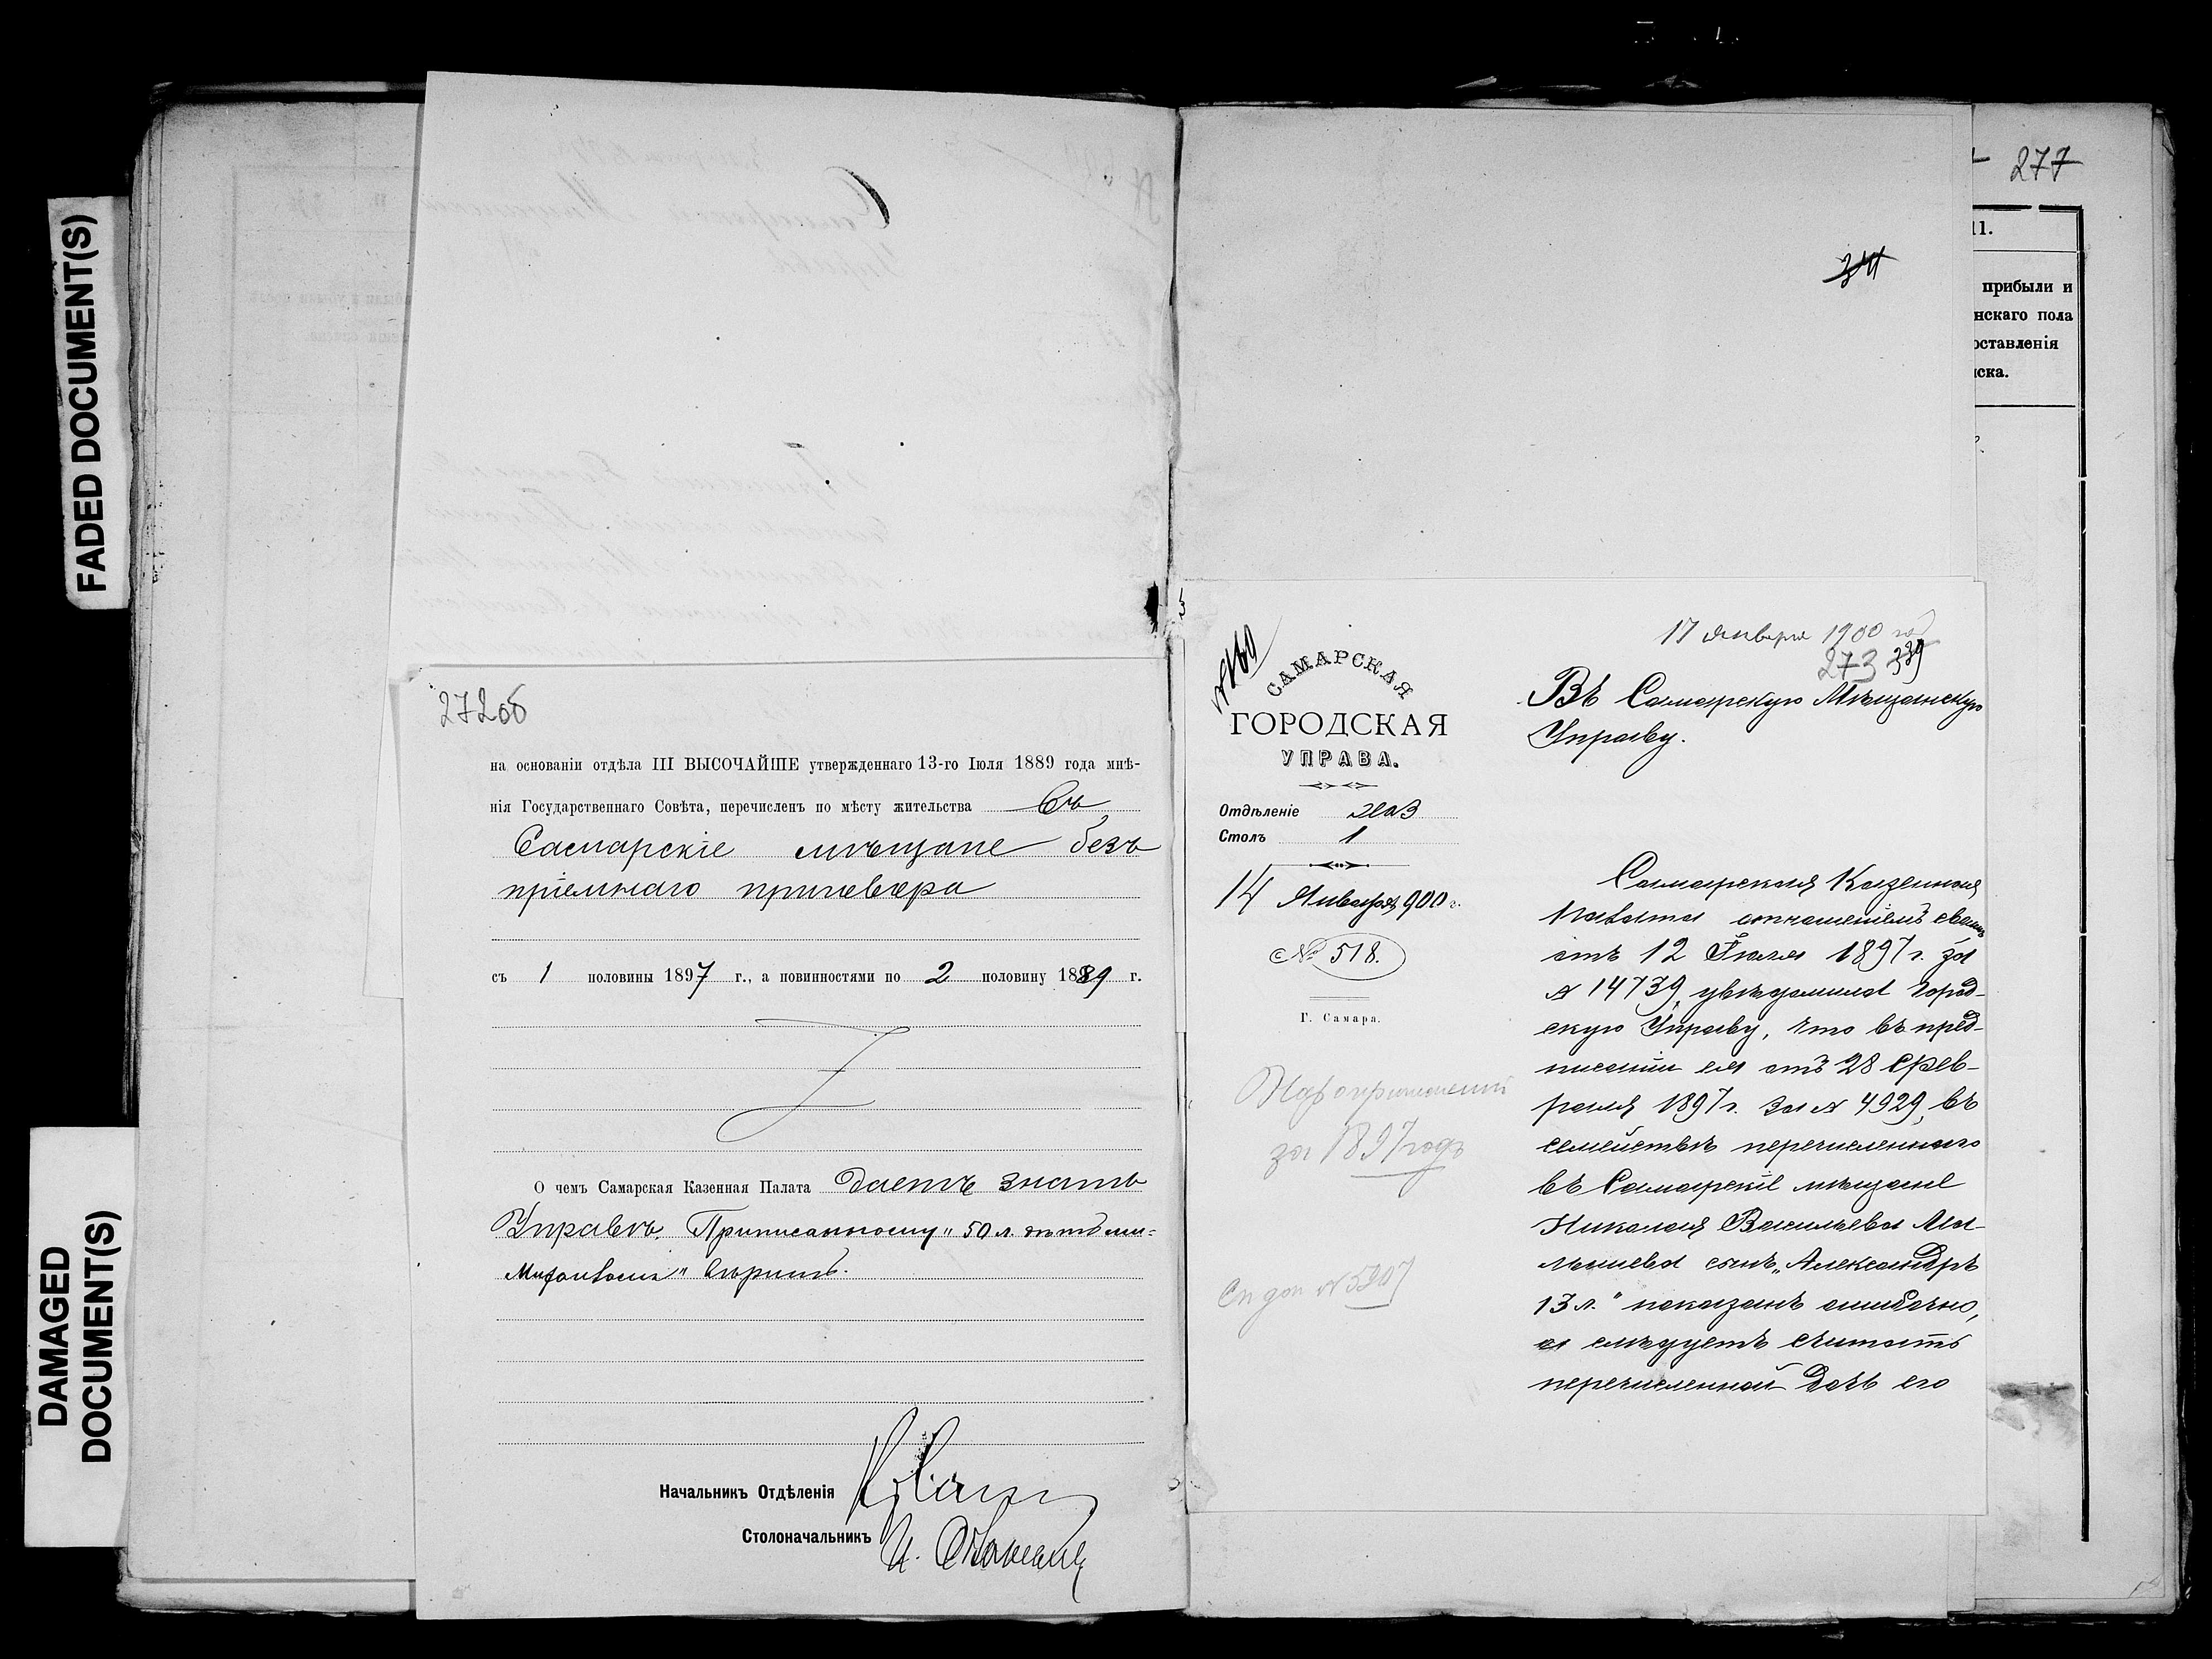 FADED DOCUMENT(S)
DAMAGED
DOCUMENT(S)
272об
на основаніи отдѣла III ВЫСОЧАЙШЕ утвержденнаго 13-го Іюля 1889 года мнѣ-
нія Государственнаго Совѣта, перечисленъ по мѣсту жительства Въ
Самарскіе мѣщане безъ
пріемнаго приговора
съ 1 половины 1897 г., а повинностями по 2 половину 1889 г.
О чемъ Самарская Казенная Палата даетъ знать
Управѣ. Приписанному 50 л.
Начальникъ Отдѣленія
Столоначальникъ
САМАРСКАЯ
ГОРОДСКАЯ
УПРАВА.
Отдѣленіе
Столъ 1
14 Января 900 г.
№ 518.
Г. Самара.
за 1897 годъ
17 января 1900 год
273 339
Въ Самарскую Мѣщанскую
Управу.
Самарская Казенная
Палата отношеніемъ своимъ
отъ 12 Іюля 1897 г. за
№ 14739, увѣдомила Город-
скую Управу, что въ пред-
писаніи ея отъ 28 Фев-
раля 1897 г. за № 4929, въ
семействѣ перечисленнаго
въ Самарскіе мѣщане
Николая Васильева Ма-
лышева сынъ „Александръ
13 л.“ показанъ ошибочно,
а слѣдуетъ считать
перечисленной дочь его
277
11.
прибыли и
нскаго пола
оставленія
иска.